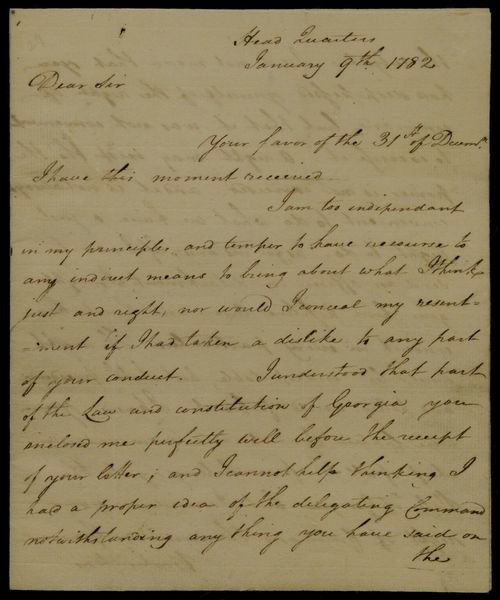 Head Quarters
January 9th 1782
Dear Sir
Your favor of the 31st of Decemr.
I have this moment received.
I am too independant
in my principles and temper to have recourse to
any indirect means to bring about what I think
just and right, nor would I conceal my resent-
-ment if I had taken a dislike to any part
of your conduct. I understood that part
of the Law and constitution of Georgia you
enclosed me perfectly well before the receipt
of your letter; and I cannot help thinking I
had a proper idea of the delegating Command
notwithstanding any thing you have said on
the